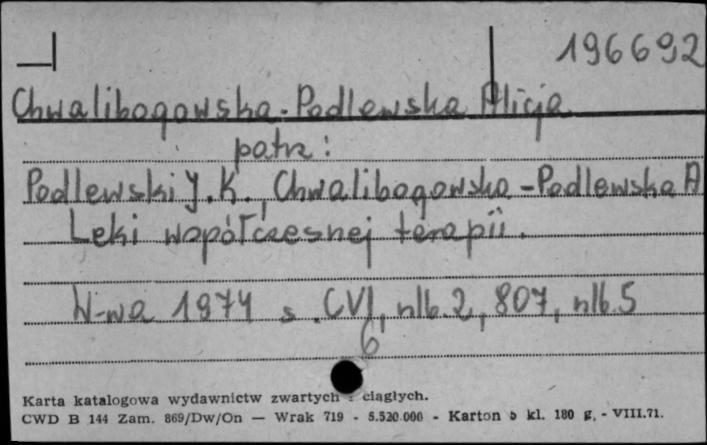 196692
Chwalibogowska-Podlewska Alicja
patrz:
Podlewski J. K., Chwalibogowska-Podlewska A
Leki współczesnej terapii.
W-wa 1974 s. CVI, nlb. 2, 807, nlb. 5
6
Karta katalogowa wydawnictw zwartych i ciągłych.
CWD B 144 Zam. 869/Dw/On — Wrak 719 - 5.520.000 - Karton b kl. 180 g. - VIII.71.